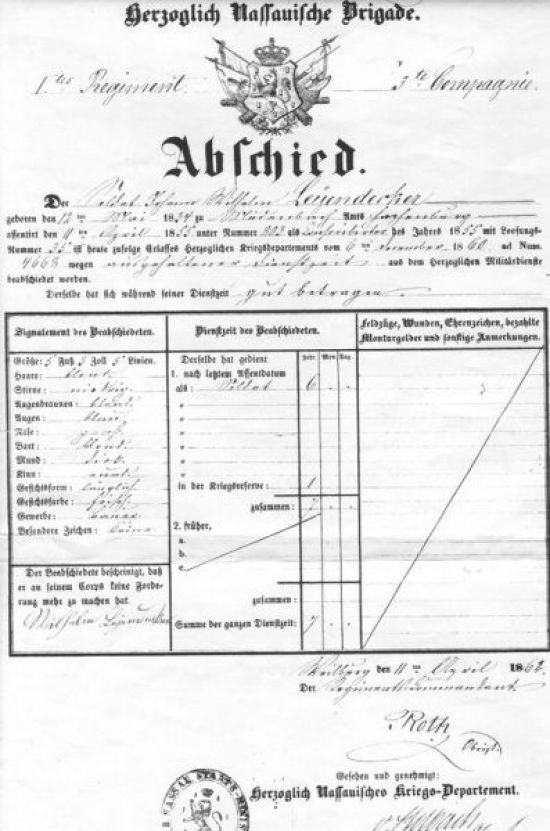 Herzoglich Nassauische Brigade.
1tes Regiment. 3te Compagnie.
Abschied.
Der Soldat Johann Wilhelm Leyendecker
geboren den 12ten Mai 1834 zu Amts Hachenburg
assentirt den 11 April 1855 unter Nummer 303 als des Jahres 1855 mit Loosungs-
Nummer 35 ist heute zufolge Erlasses Herzoglichen Kriegsdepartements vom 6ten 1860 ad Num.
4668 wegen ausgehaltener Dienstzeit aus dem Herzoglichen Militärdienste
beabschiedet worden.
Derselbe hat sich während seiner Dienstzeit gut betragen.
Signalement des Beabschiedeten.
Größe: 5 Fuß 3 Zoll 5 Linien.
Haare: blond
Stirne: niedrig
Augenbraunen: blond
Augen: blau
Nase:
Bart: blond
Mund: dick
Kinn: oval
Gesichtsform: länglich
Gesichtsfarbe: frisch
Gewerbe: Bauer
Besondere Zeichen: keine
Der Beabschiedete bescheinigt, daß
er an seinem Corps keine Forde-
rung mehr zu machen hat
Wilhelm Leyendecker
Dienstzeit des Beabschiedeten.
Derselbe hat gedient Jahr Mon. Tag.
1. nach letztem Assentdatum
als: Soldat 6 . .
"
"
"
"
"
"
in der Kriegsreserve: 1
zusammen: 7 . .
2. früher,
a.
b.
c.
zusammen:
Summe der ganzen Dienstzeit: 7 . .
Feldzüge, Wunden, Ehrenzeichen, bezahlte
Monturgelder und sonstige Anmerkungen.
Weilburg den 11ten April 1862.
Der Regiments Commandant.
Roth
Obrist.
Gesehen und genehmigt:
Herzoglich Nassauisches Kriegs-Departement.
NASSAU STAATS-MINIS